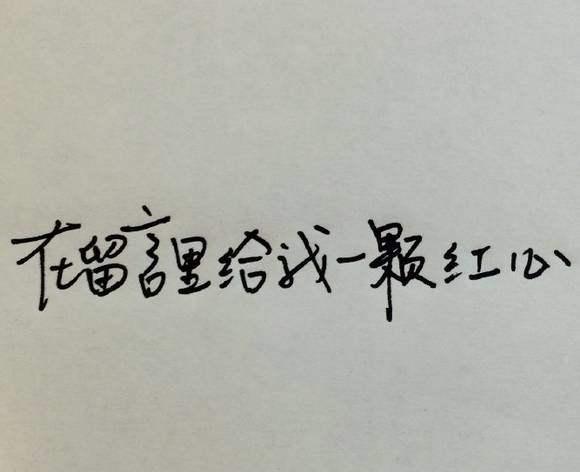 在留言里给我一颗红心